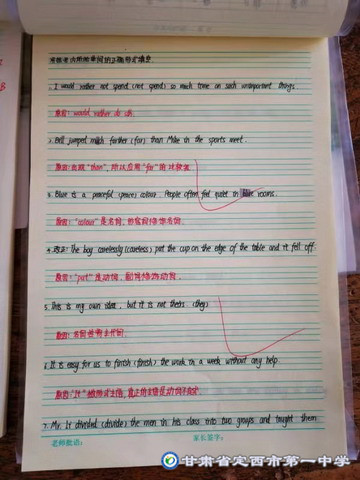 用括号内所给单词的正确形式填空
1. I would rather not spend (not spend) so much time on such unimportant things.
原因: would rather do sth.
2. Bill jumped much farther (far) than Mike in the sports meet.
原因: 出现"than", 所以应用"far"的比较级
3. Blue is a peaceful (peace) colour. People often feel quiet in blue rooms.
原因: "colour"是名词, 形容词修饰名词.
4. 改正: The boy carelessly (careless) put the cup on the edge of the table and it fell off.
原因: "put"是动词, 副词修饰动词.
5. This is my own idea, but it is not theirs (they)
原因: 名词性物主代词.
6. It is easy for us to finish (finish) the work in a week without any help.
原因: "It"做形式主语, 真正的主语是动词不定式.
7. Mr. Li divided (divide) the men in his class into two groups and taught them
老师批语: 家长签字:
甘肃省定西市第一中学